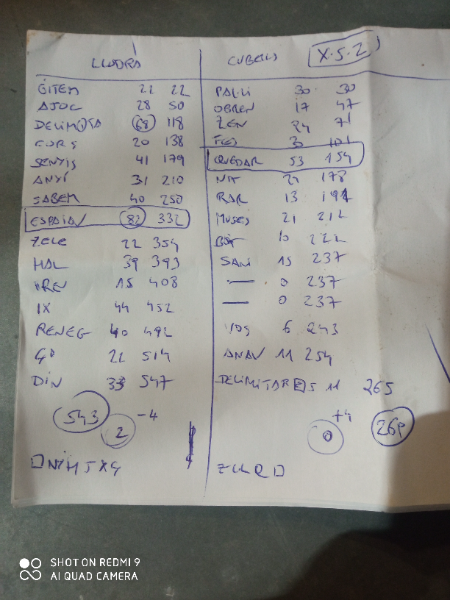 LLADRA
CUBELLS
X-5-2
GITEM 22 22
AJUC 28 50
DELIMOSA 68 118
CURS 20 138
SENYIS 41 179
ANYI 31 210
SABEM 40 250
ESPAIAV 82 332
ZELE 22 354
HAL 39 393
IREN 15 408
IX 44 452
RENEG 40 492
GO 22 514
DIN 33 547
543 -4
2
PAL·LI 30 30
OBREN 17 47
ZEN 24 71
101
QUEDAR 53 154
NIT 24 178
RAR 13 191
MUSES 21 212
10 222
SAN 15 237
— 0 237
— 0 237
IOS 6 243
ANAV 11 254
DELIMITARES 11 265
+4 269
0